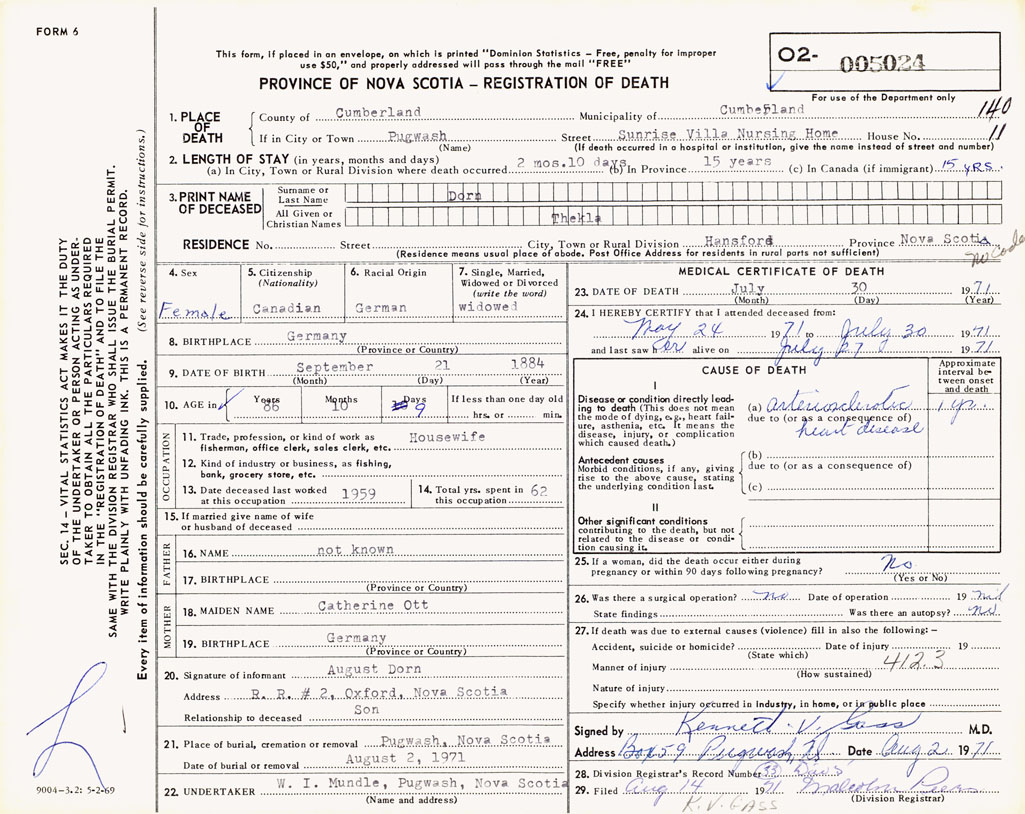 FORM 6
This form, if placed in an envelope, on which is printed "Dominion Statistics – Free, penalty for improper
use $50," and properly addressed will pass through the mail "FREE"
PROVINCE OF NOVA SCOTIA – REGISTRATION OF DEATH
O2- 005024
For use of the Department only
140
11
1. PLACE OF DEATH
County of Cumberland Municipality of Cumberland
If in City or Town Pugwash Street Sunrise Villa Nursing Home House No.
(Name) (If death occurred in a hospital or institution, give the name instead of street and number)
2. LENGTH OF STAY (in years, months and days)
(a) In City, Town or Rural Division where death occurred 2 mos.10 days (b) In Province 15 years (c) In Canada (if immigrant) 15 YRS.
3. PRINT NAME OF DECEASED
Surname or Last Name Dorn
All Given or Christian Names Thekla
RESIDENCE No. Street City, Town or Rural Division Hansford Province Nova Scotia
(Residence means usual place of abode. Post Office Address for residents in rural parts not sufficient)
No Code
4. Sex Female
5. Citizenship (Nationality) Canadian
6. Racial Origin German
7. Single, Married, Widowed or Divorced (write the word) widowed
8. BIRTHPLACE Germany
(Province or Country)
9. DATE OF BIRTH September 21 1884
(Month) (Day) (Year)
10. AGE in Years 86 Months 10 Days 9 If less than one day old hrs. or min.
OCCUPATION
11. Trade, profession, or kind of work as fisherman, office clerk, sales clerk, etc. Housewife
12. Kind of industry or business, as fishing, bank, grocery store, etc.
13. Date deceased last worked at this occupation 1959
14. Total yrs. spent in this occupation 62
15. If married give name of wife or husband of deceased
FATHER
16. NAME not known
17. BIRTHPLACE
(Province or Country)
MOTHER
18. MAIDEN NAME Catherine Ott
19. BIRTHPLACE Germany
(Province or Country)
20. Signature of informant August Dorn
Address R. R. # 2, Oxford, Nova Scotia
Relationship to deceased Son
21. Place of burial, cremation or removal Pugwash, Nova Scotia
Date of burial or removal August 2, 1971
22. UNDERTAKER W. I. Mundle, Pugwash, Nova Scotia
(Name and address)
MEDICAL CERTIFICATE OF DEATH
23. DATE OF DEATH July 30 1971
(Month) (Day) (Year)
24. I HEREBY CERTIFY that I attended deceased from:
May 24 1971 to July 30 1971
and last saw her alive on July 27 1971
CAUSE OF DEATH
Approximate interval between onset and death
I
Disease or condition directly leading to death (This does not mean the mode of dying, e.g., heart failure, asthenia, etc. It means the disease, injury, or complication which caused death.)
(a) arteriosclerotic 1 yr.
due to (or as a consequence of) heart disease
Antecedent causes
Morbid conditions, if any, giving rise to the above cause, stating the underlying condition last.
(b)
due to (or as a consequence of)
(c)
II
Other significant conditions contributing to the death, but not related to the disease or condition causing it.
25. If a woman, did the death occur either during pregnancy or within 90 days following pregnancy? No
(Yes or No)
26. Was there a surgical operation? no Date of operation 19 nil
State findings Was there an autopsy? no
27. If death was due to external causes (violence) fill in also the following: –
Accident, suicide or homicide? Date of injury 19
(State which)
412.3
Manner of injury
(How sustained)
Nature of injury
Specify whether injury occurred in industry, in home, or in public place
Signed by Kenneth V. Gass M.D.
Address Box 59 Pugwash, NS Date Aug 2 1971
28. Division Registrar's Record Number 33
29. Filed Aug 14 1971 Malcolm
(Division Registrar)
K.V. GASS
SEC. 14 – VITAL STATISTICS ACT MAKES IT THE DUTY
OF THE UNDERTAKER OR PERSON ACTING AS UNDER-
TAKER TO OBTAIN ALL THE PARTICULARS REQUIRED
IN THE "REGISTRATION OF DEATH" AND TO FILE THE
SAME WITH THE DIVISION REGISTRAR WHO SHALL ISSUE THE BURIAL PERMIT.
WRITE PLAINLY WITH UNFADING INK. THIS IS A PERMANENT RECORD.
Every item of information should be carefully supplied. (See reverse side for instructions.)
9004-3.2: 5-2-69